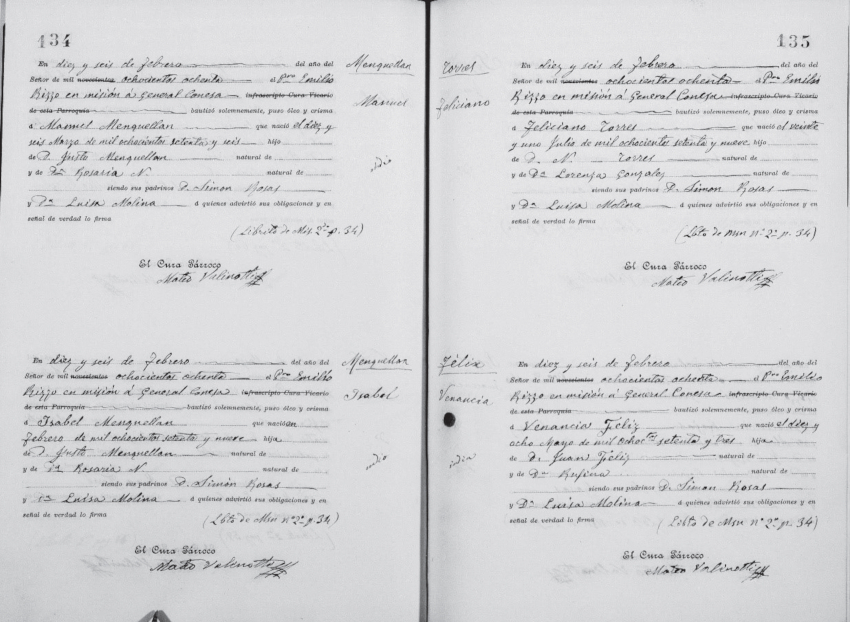 134
En diez y seis de febrero del año del
Señor de mil novecientos ochocientos ochenta el Pro Emilio
Rizzo en misión á General Conesa infrascripto Cura Vicario
de esta Parroquia bautizó solemnemente, puso óleo y crisma
á Manuel Menquellan que nació el diez y
seis Marzo de mil ochocientos setenta y seis hijo
de D. Justo Menquellan natural de
y de Da Rosaria N. natural de
siendo sus padrinos D. Simon Rosas
y Da Luisa Molina á quienes advirtió sus obligaciones y en
señal de verdad lo firma
(Librito de Mis. 2º p. 34)
El Cura Párroco
Mateo Valinotti
Menquellan
Manuel
indio
En diez y seis de febrero del año del
Señor de mil novecientos ochocientos ochenta el Pro Emilio
Rizzo en misión á General Conesa infrascripto Cura Vicario
de esta Parroquia bautizó solemnemente, puso óleo y crisma
á Isabel Menquellan que nació en
Febrero de mil ochocientos setenta y nueve hija
de D. Justo Menquellan natural de
y de Da Rosaria N. natural de
siendo sus padrinos D. Simón Rosas
y Da Luisa Molina á quienes advirtió sus obligaciones y en
señal de verdad lo firma
(Lbto de Msn nº 2º p. 34)
El Cura Párroco
Mateo Valinotti
Menquellan
Isabel
indio
135
Torres
Feliciano
En diez y seis de febrero del año del
Señor de mil novecientos ochocientos ochenta el Pro Emilio
Rizzo en misión á General Conesa infrascripto Cura Vicario
de esta Parroquia bautizó solemnemente, puso óleo y crisma
á Feliciano Torres que nació el veinte
y uno Julio de mil ochocientos setenta y nueve hijo
de D. N. Torres natural de
y de Da Lorenza Gonzalez natural de
siendo sus padrinos D. Simon Rosas
y Da Luisa Molina á quienes advirtió sus obligaciones y en
señal de verdad lo firma
(Lbto de Msn nº 2º p. 34)
El Cura Párroco
Mateo Valinotti
Féliz
Venancia
india
En diez y seis de febrero del año del
Señor de mil novecientos ochocientos ochenta el Pro Emilio
Rizzo en misión á General Conesa infrascripto Cura Vicario
de esta Parroquia bautizó solemnemente, puso óleo y crisma
á Venancia Féliz que nació el diez y
ocho Marzo de mil ochoc.tos setenta y tres hija
de D. Juan Féliz natural de
y de Da Rufina natural de
siendo sus padrinos D. Simon Rosas
y Da Luisa Molina á quienes advirtió sus obligaciones y en
señal de verdad lo firma
(Lbto de Msn nº 2º p. 34)
El Cura Párroco
Mateo Valinotti